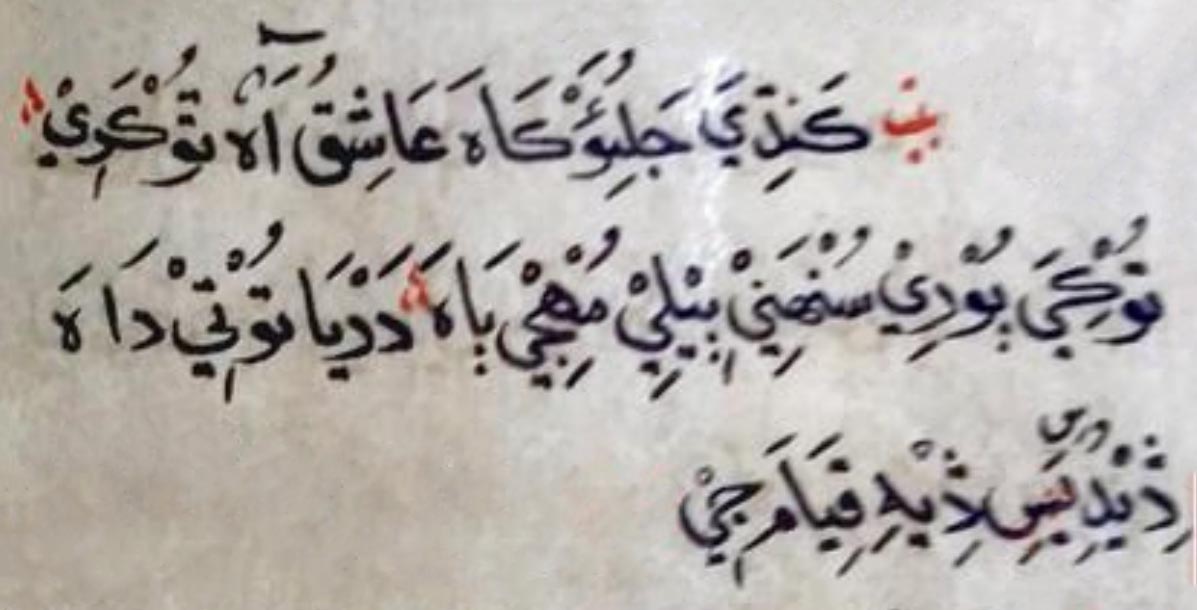 كَنڌِيَ جَلِئوُ كَاهَ عَاشِقُ آهَ توُ كَرِيْ
توُكِيَ بوُدِيْ سُنْهَنِيْ بِيْلِيْ مُهْجِيْ بَاهَ دَرْيَا توُتِيْ دَاهَ
ڎِيْندِيَسِ ڎِيْهِ قِيَامَ جِيْ